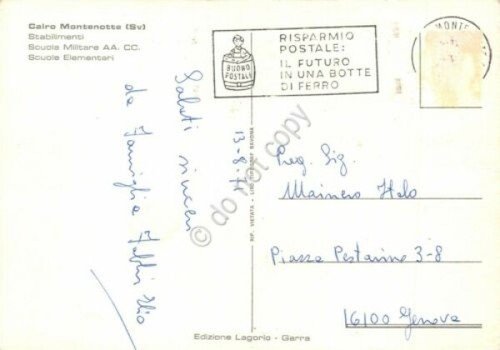 Cairo Montenotte (Sv)
Stabilimenti
Scuola Militare AA. CC.
Scuole Elementari
BUONO
POSTALE
RISPARMIO
POSTALE:
IL FUTURO
IN UNA BOTTE
DI FERRO
MONTENOTTE
13-8-
Saluti sinceri
da famiglia
Preg. Sig.
Mainero Italo
Piazza 3-8
16100 Genova
RIP. VIETATA
SAVONA
Edizione Lagorio - Garra
© do not copy